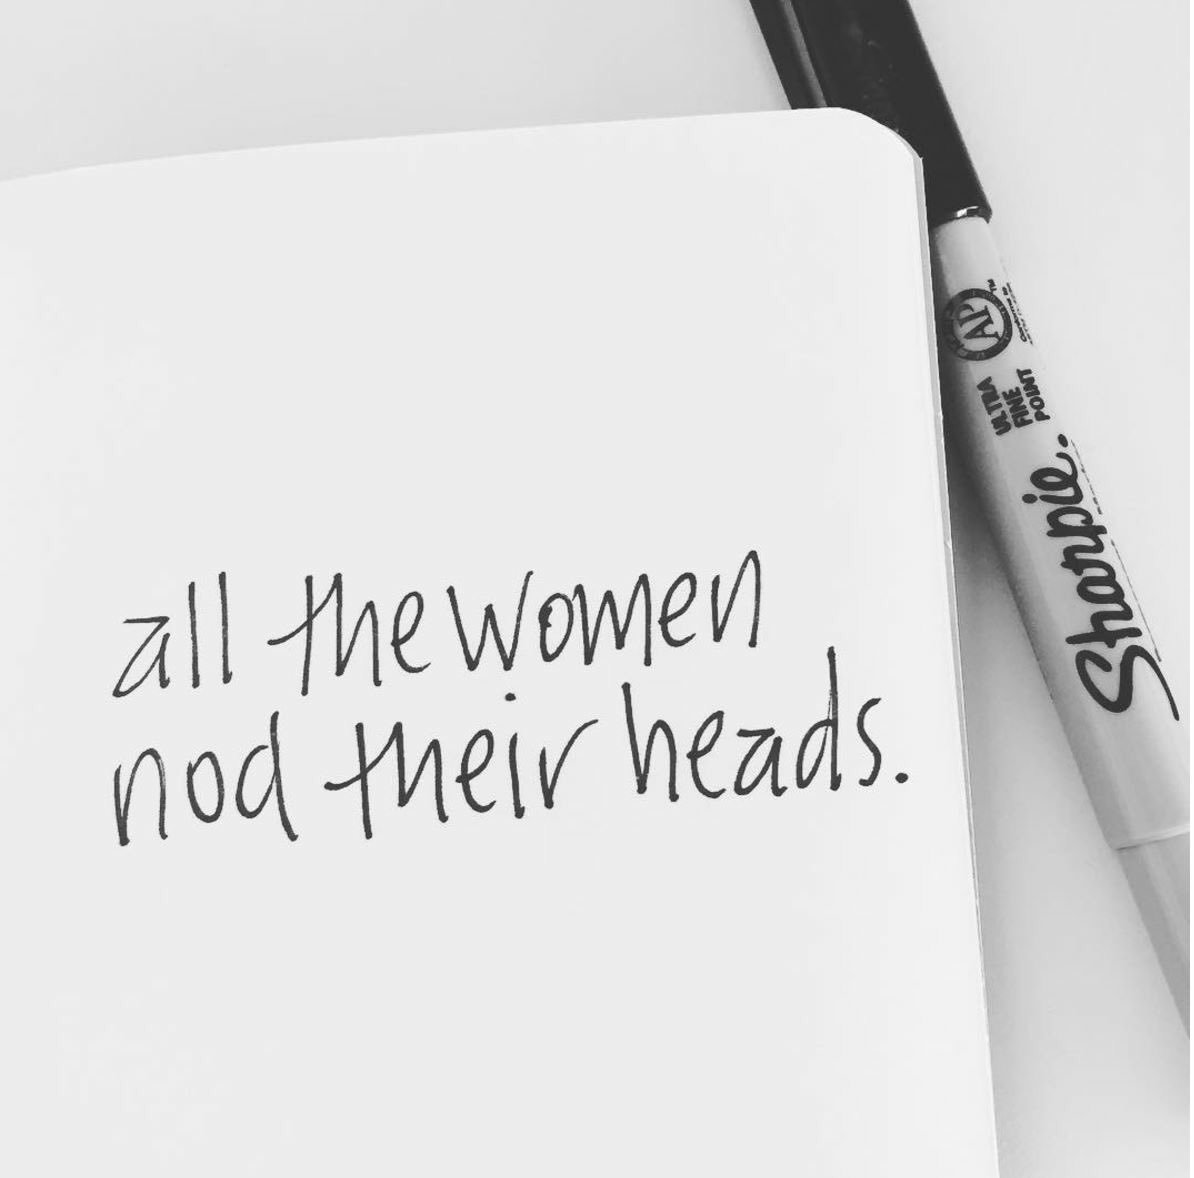 all the women
nod their heads.
AP
ULTRA
FINE
POINT
Sharpie.